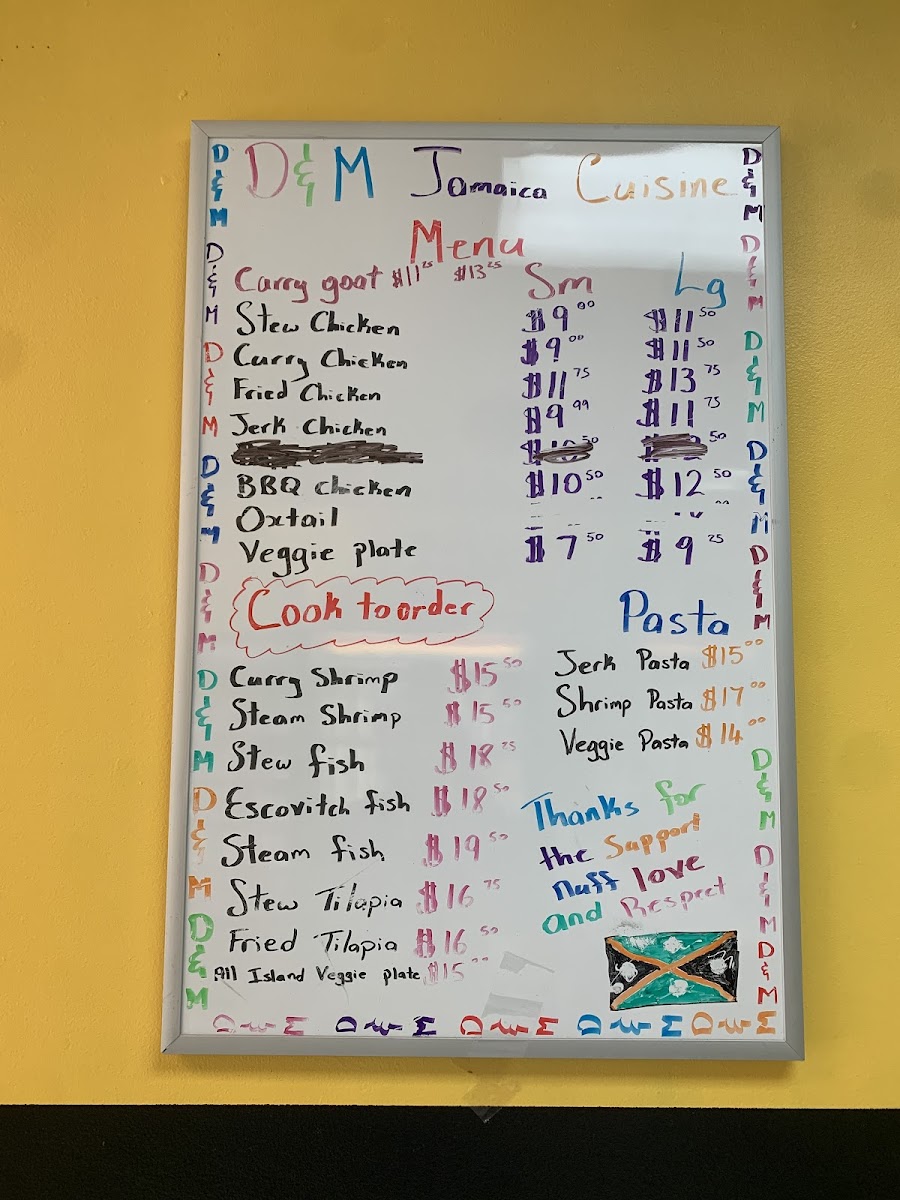 D&M Jamaica Cuisine
Menu
Curry goat $11.25 $13.25 Sm Lg
Stew Chicken $9.00 $11.50
Curry Chicken $9.00 $11.50
Fried Chicken $11.75 $13.75
Jerk Chicken $9.99 $11.75
BBQ Chicken $10.50 $12.50
Oxtail
Veggie plate $7.50 $9.25
Cook to order
Curry Shrimp $15.50
Steam Shrimp $15.50
Stew fish $18.25
Escovitch fish $18.50
Steam fish $19.50
Stew Tilapia $16.75
Fried Tilapia $16.50
All Island Veggie plate $15
Pasta
Jerk Pasta $15.00
Shrimp Pasta $17.00
Veggie Pasta $14.00
Thanks for
the Support
Nuff love
and Respect
D&M D&M D&M D&M D&M D&M D&M D&M
D&M D&M D&M D&M D&M D&M D&M D&M
D&M D&M D&M D&M D&M